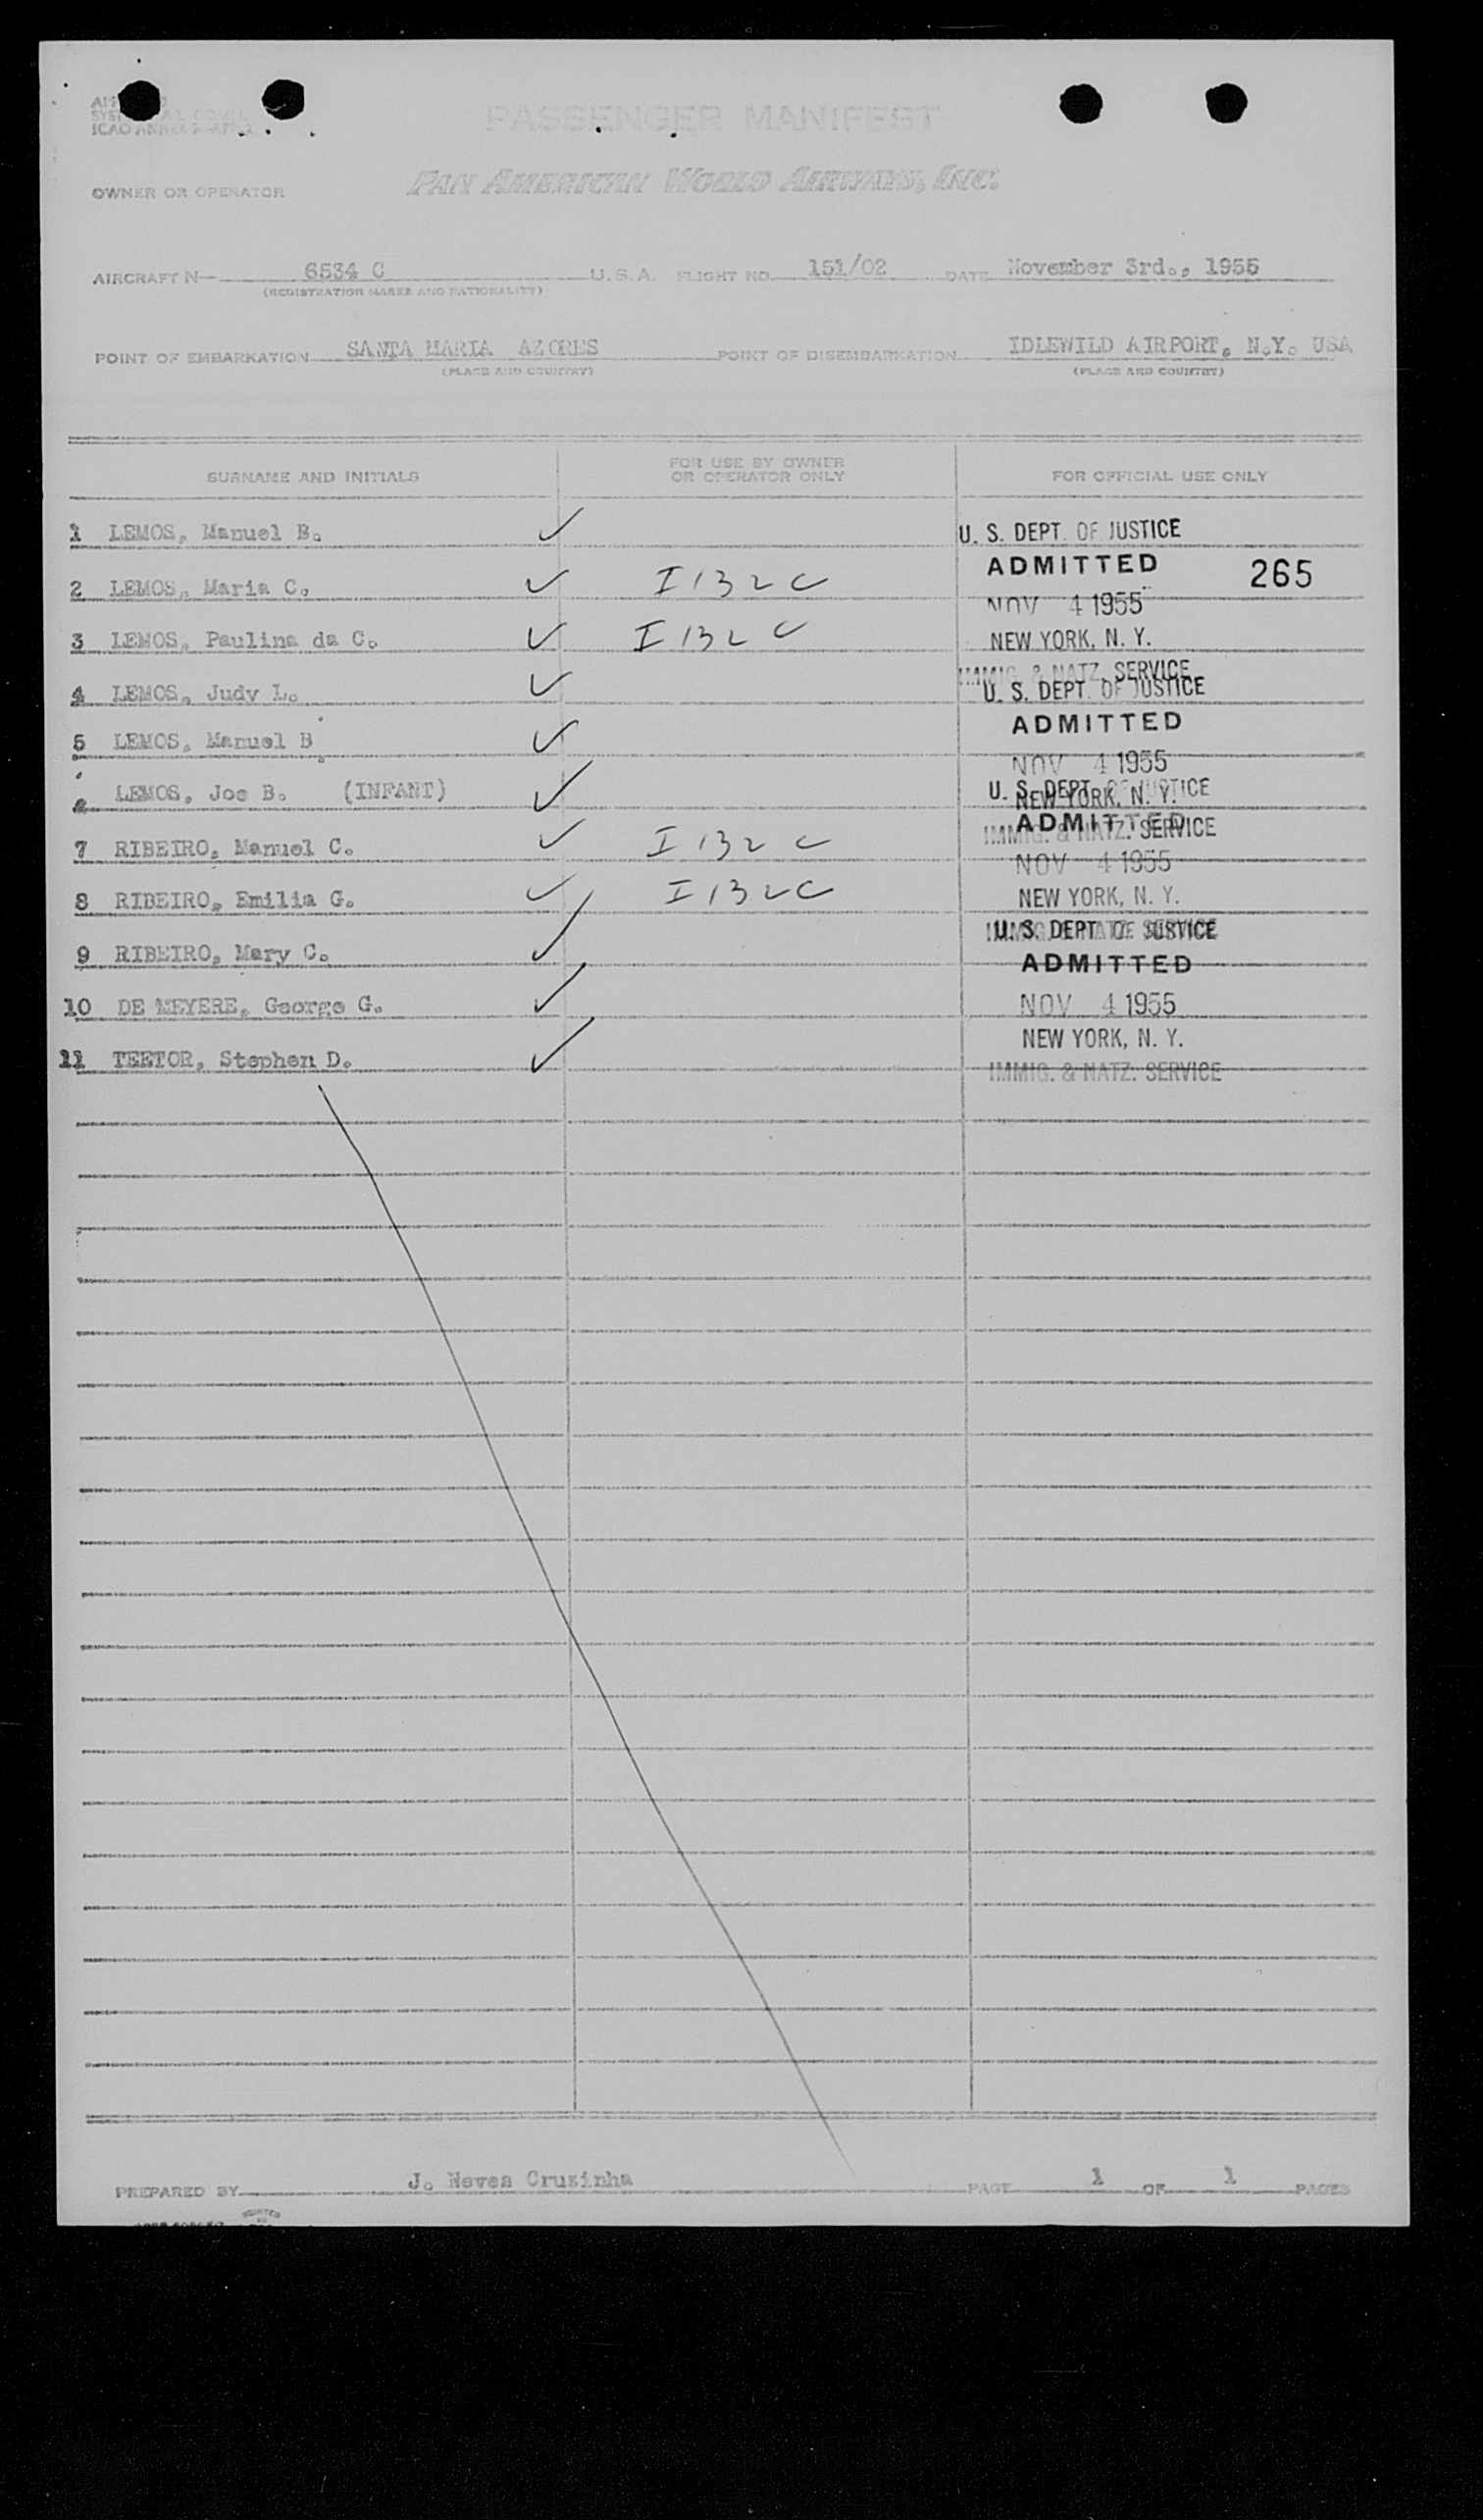 PASSENGER MANIFEST
OWNER OR OPERATOR PAN AMERICAN WORLD AIRWAYS, INC.
AIRCRAFT N— 6534 C U.S.A. FLIGHT NO. 151/02 DATE November 3rd., 1955
(REGISTRATION MARKS AND NATIONALITY)
POINT OF EMBARKATION SANTA MARIA AZORES POINT OF DISEMBARKATION IDLEWILD AIRPORT, N.Y. USA
(PLACE AND COUNTRY) (PLACE AND COUNTRY)
SURNAME AND INITIALS FOR USE BY OWNER OR OPERATOR ONLY FOR OFFICIAL USE ONLY
1 LEMOS, Manuel B. ✓ U. S. DEPT. OF JUSTICE
ADMITTED 265
2 LEMOS, Maria C. ✓ I 132 C
NOV 4 1955
3 LEMOS, Paulina da C. ✓ I 132 C NEW YORK, N. Y.
IMMIG. & NATZ. SERVICE
4 LEMOS, Judy L. ✓ U. S. DEPT. OF JUSTICE
ADMITTED
5 LEMOS, Manuel B ✓
NOV 4 1955
LEMOS, Joe B. (INFANT) ✓ U. S. DEPT. OF JUSTICE
NEW YORK, N. Y.
ADMITTED
IMMIG. & NATZ. SERVICE
7 RIBEIRO, Manuel C. ✓ I 132 C
NOV 4 1955
8 RIBEIRO, Emilia G. ✓ I 132 C NEW YORK, N. Y.
U. S. DEPT. OF JUSTICE
9 RIBEIRO, Mary C. ✓ ADMITTED
10 DE MEYERE, George G. ✓ NOV 4 1955
NEW YORK, N. Y.
11 TEETOR, Stephen D. ✓
IMMIG. & NATZ. SERVICE
PREPARED BY J. Neves Cruzinha PAGE 1 OF 1 PAGES